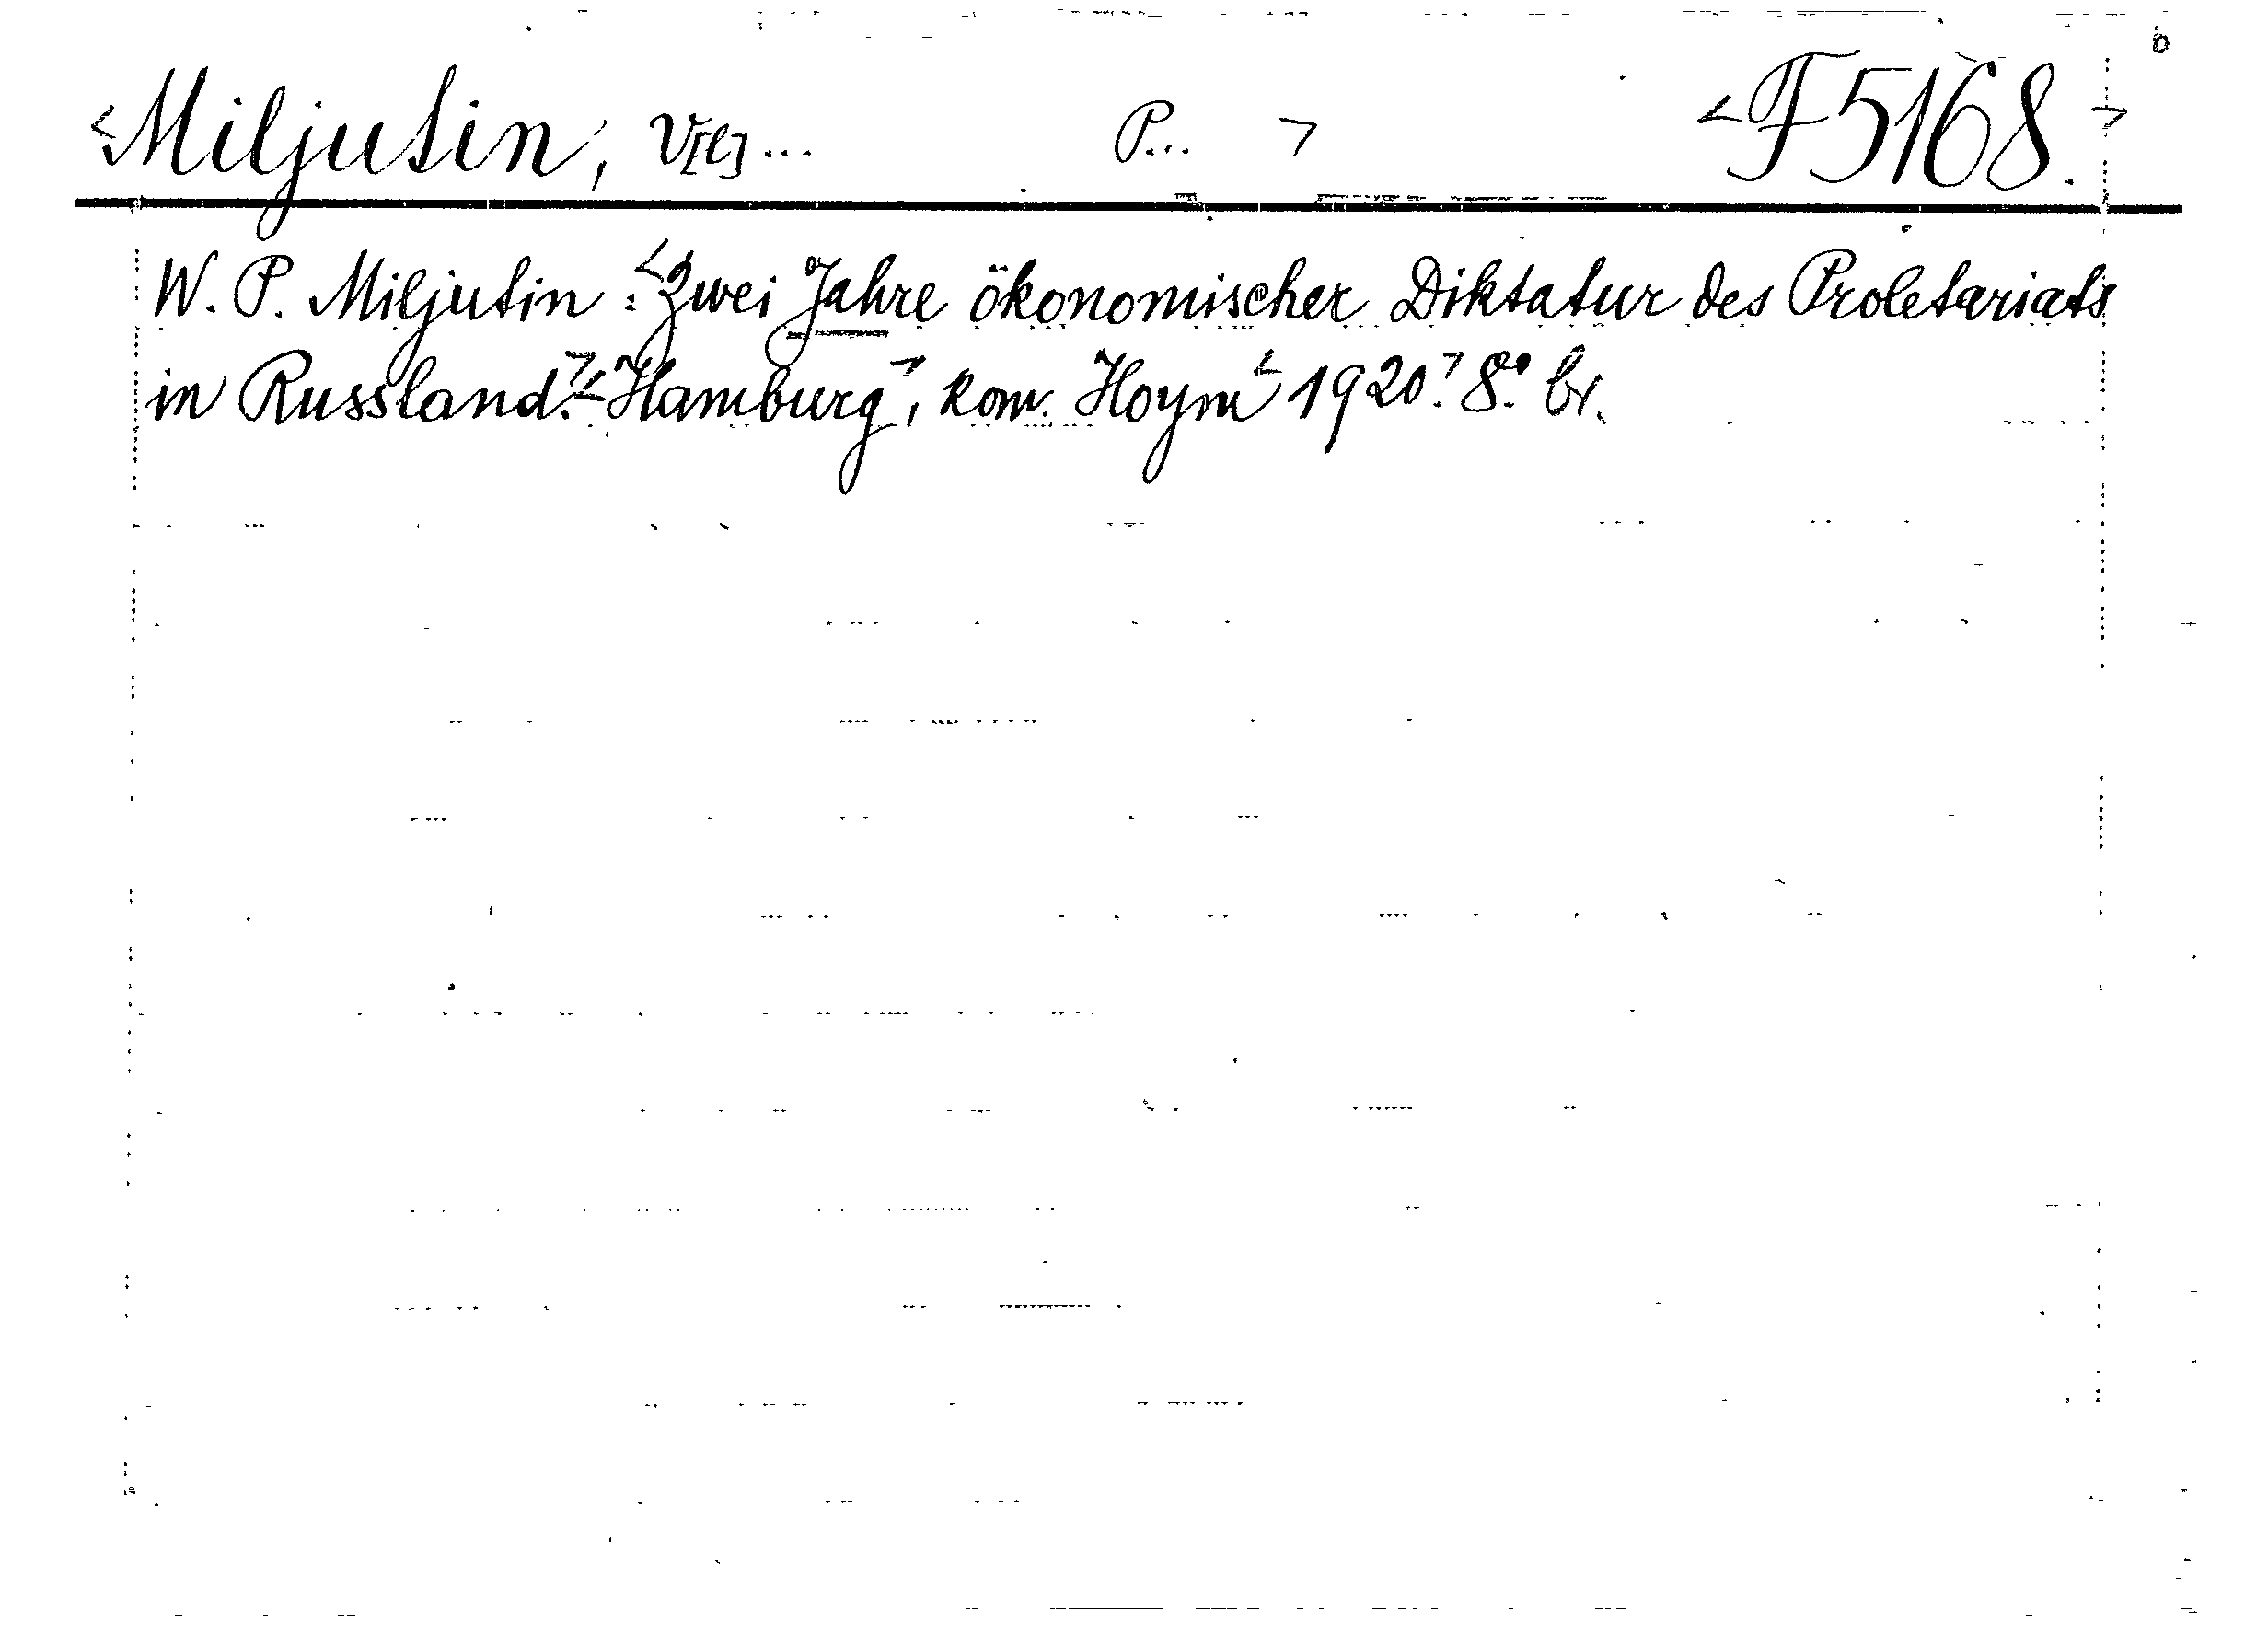 <Miljutin, V[l]... P... > <F5168.>
W. P. Miljutin: <Zwei Jahre ökonomischer Diktatur des Proletariats
in Russland.> <Hamburg>, kom. Hoym <1920.> 8.° br.